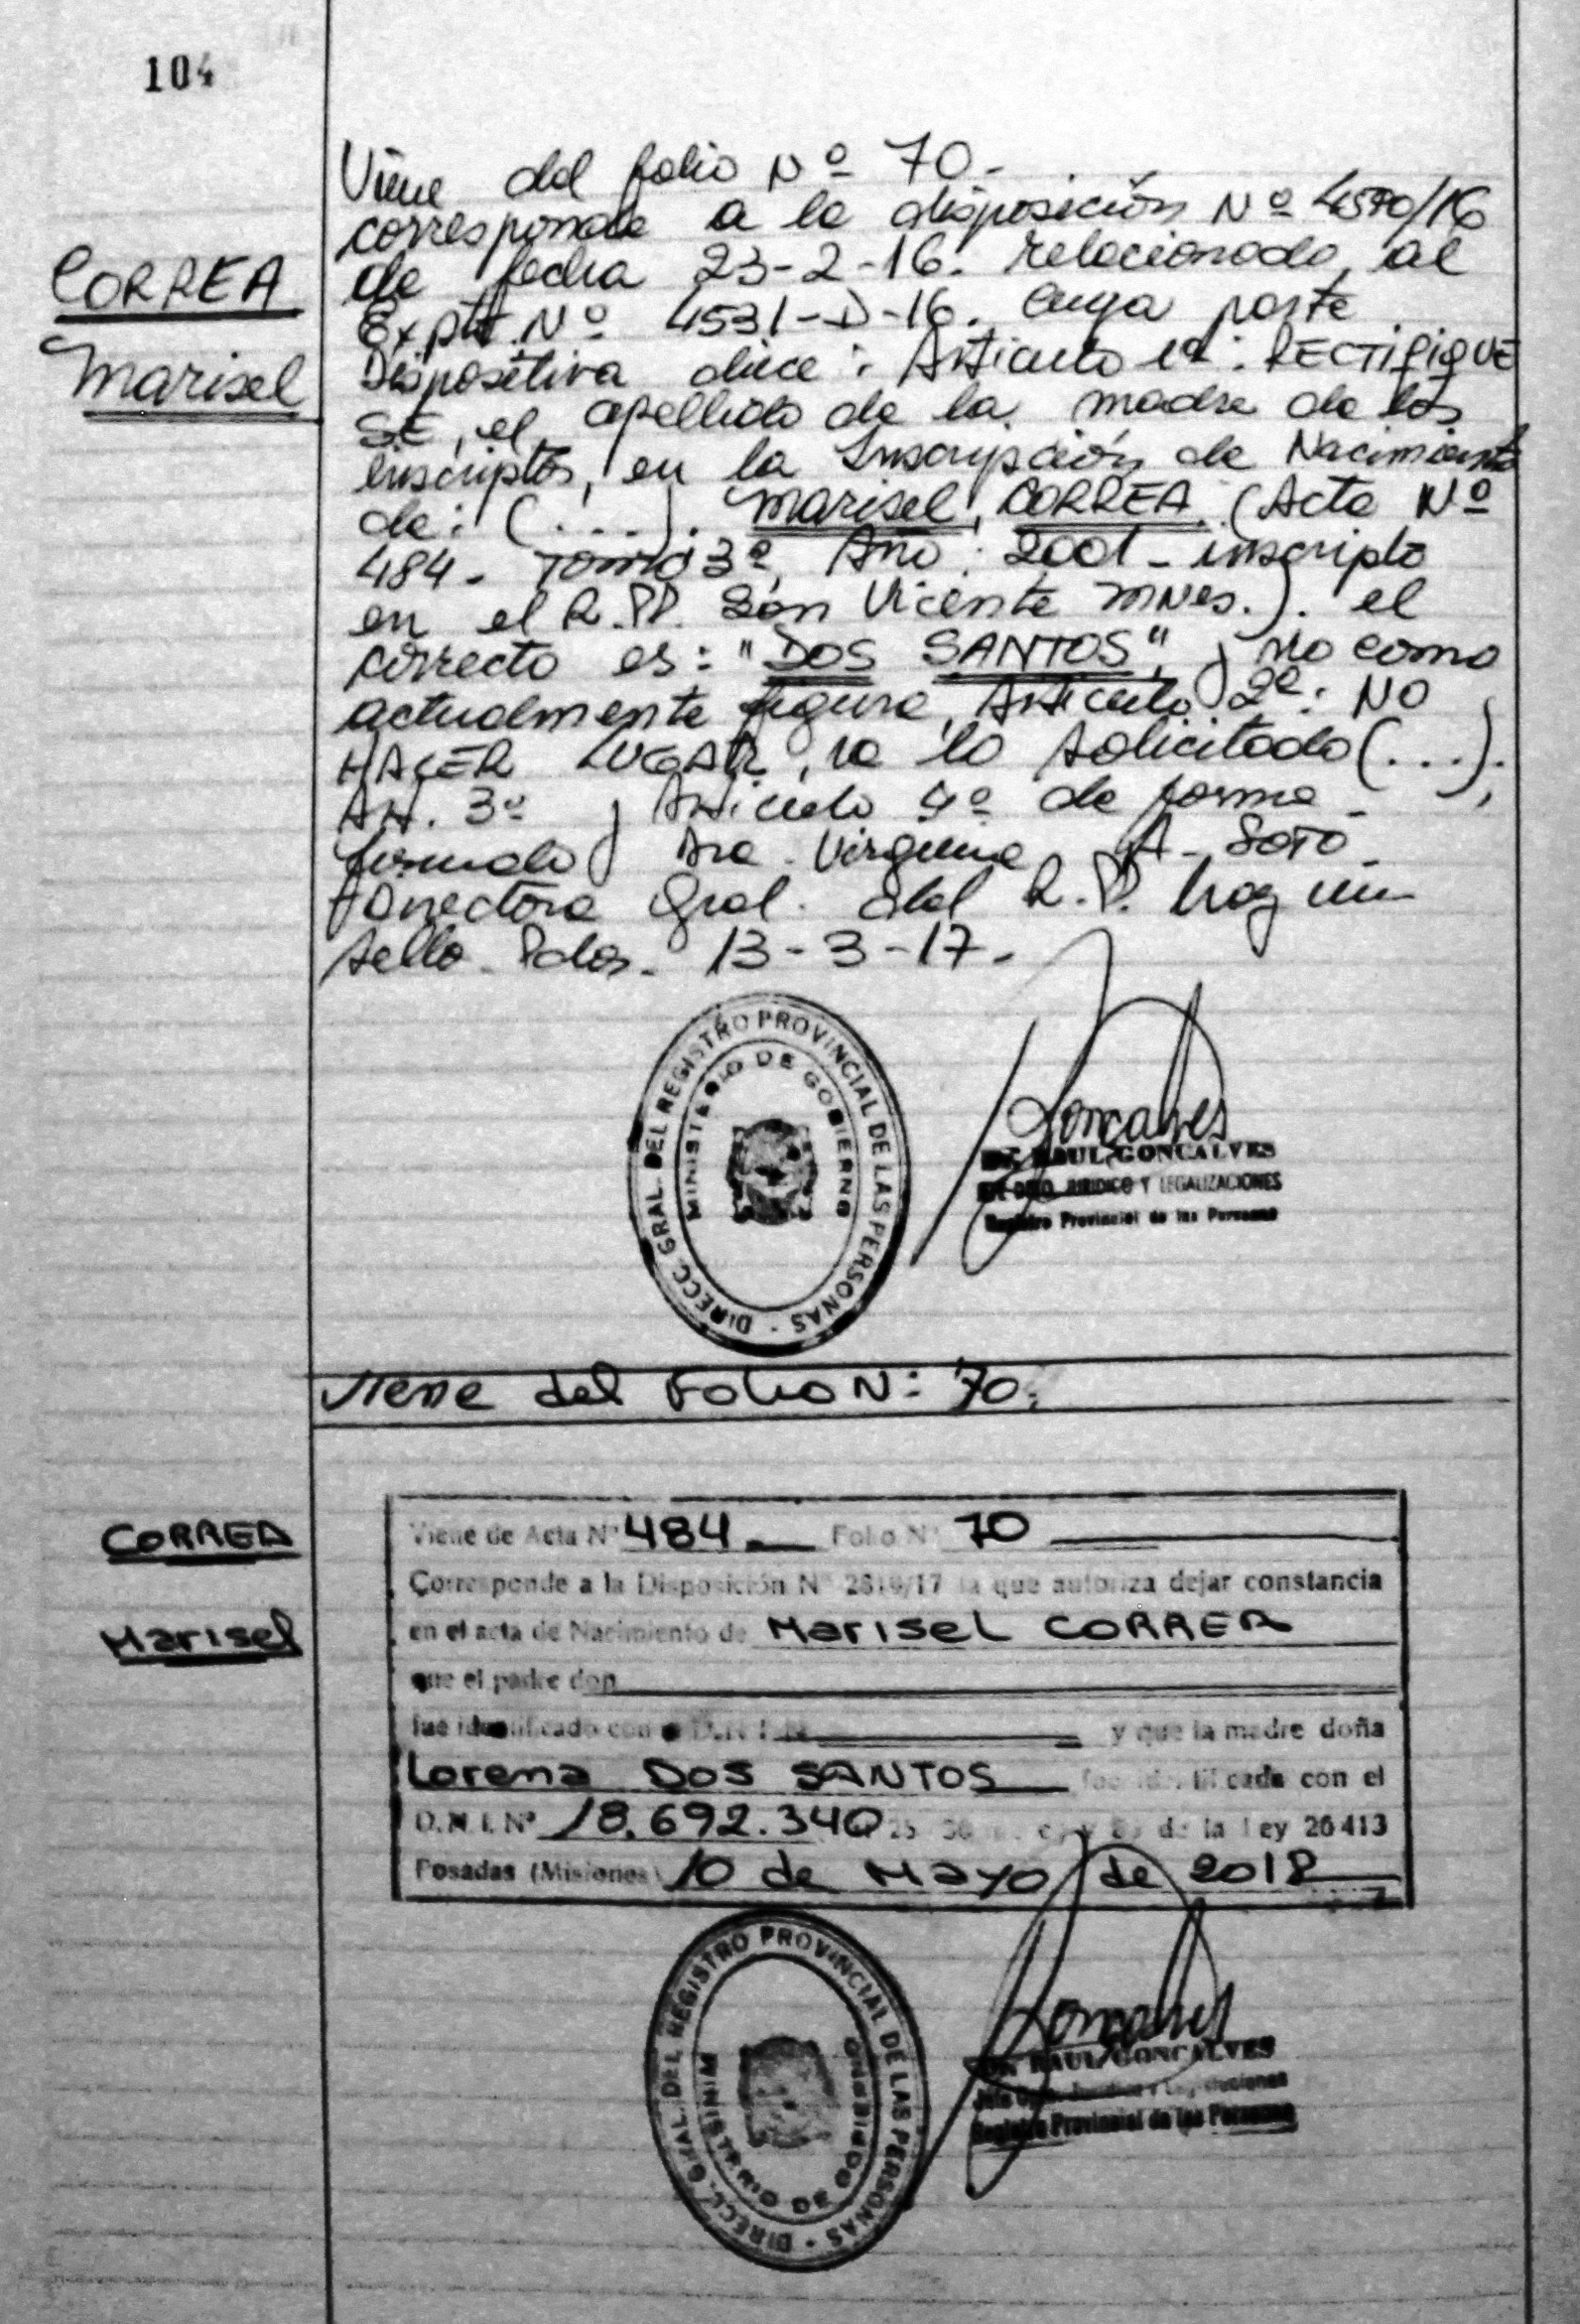 104
CORREA
Marisel
Viene del folio Nº 70.-
corresponde a la disposición Nº 4570/16
de fecha 23-2-16. relacionado, al
Expte. Nº 4531-D-16. Cuya parte
Dispositiva dice: Articulo 1º: RECTIFIQUE
SE, el apellido de la madre de los
inscriptos, en la Inscripción de Nacimiento
de: (...). Marisel, CORREA. (Acta Nº
484- Tomo 3º, Año: 2001- inscripto
en el R.P.P. San Vicente Mnes.). el
correcto es: "DOS SANTOS", y no como
actualmente figura, Articulo 2º: NO
HACER LUGAR, a lo solicitado (...).
Art. 3º y Articulo 4º de forma-
firmado Dra. Virginia A- SOTO-
Directora Gral. del R.P. hay un
sello. Pdas- 13-3-17.-
DIRECC. GRAL. DEL REGISTRO PROVINCIAL DE LAS PERSONAS -
MINISTERIO DE GOBIERNO
Goncalves
RAUL GONCALVES
JURIDICO Y LEGALIZACIONES
Registro Provincial de las Personas
Viene del Folio N: 70.
CORREA
Marisel
Viene de Acta Nº 484 Folio Nº 70
Corresponde a la Disposición Nº 2819/17 la que autoriza dejar constancia
en el acta de Nacimiento de Marisel CORREA
que el padre don
fue identificado con D.N.I. Nº y que la madre doña
Lorena DOS SANTOS fue identificada con el
D.N.I. Nº 18.692.340 de la Ley 26413
Posadas (Misiones) 10 de Mayo de 2018
DIRECC. GRAL. DEL REGISTRO PROVINCIAL DE LAS PERSONAS -
MINISTERIO DE GOBIERNO
Goncalves
RAUL GONCALVES
Registro Provincial de las Personas